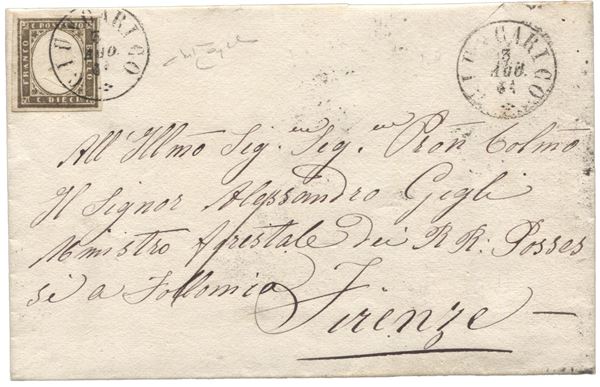 C. POSTALE 20
FRANCO
BOLLO
C. DIECI
FIUNGARICO
3
AGO.
61
FIUNGARICO
3
AGO.
61
All' Illmo Sig. Sig. Pron Colmo
Il Signor Alessandro Gigli
Ministro Aprestale dei RR: Posses
si a Follonica
Firenze